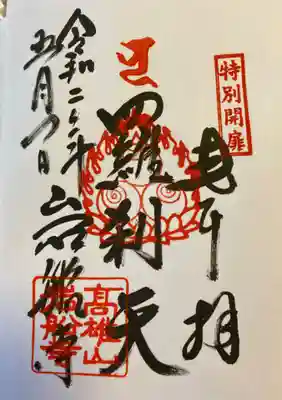 特別開扉
奉拝
羅刹天
岩船寺
令和二年
五月日
高雄山
岩船寺